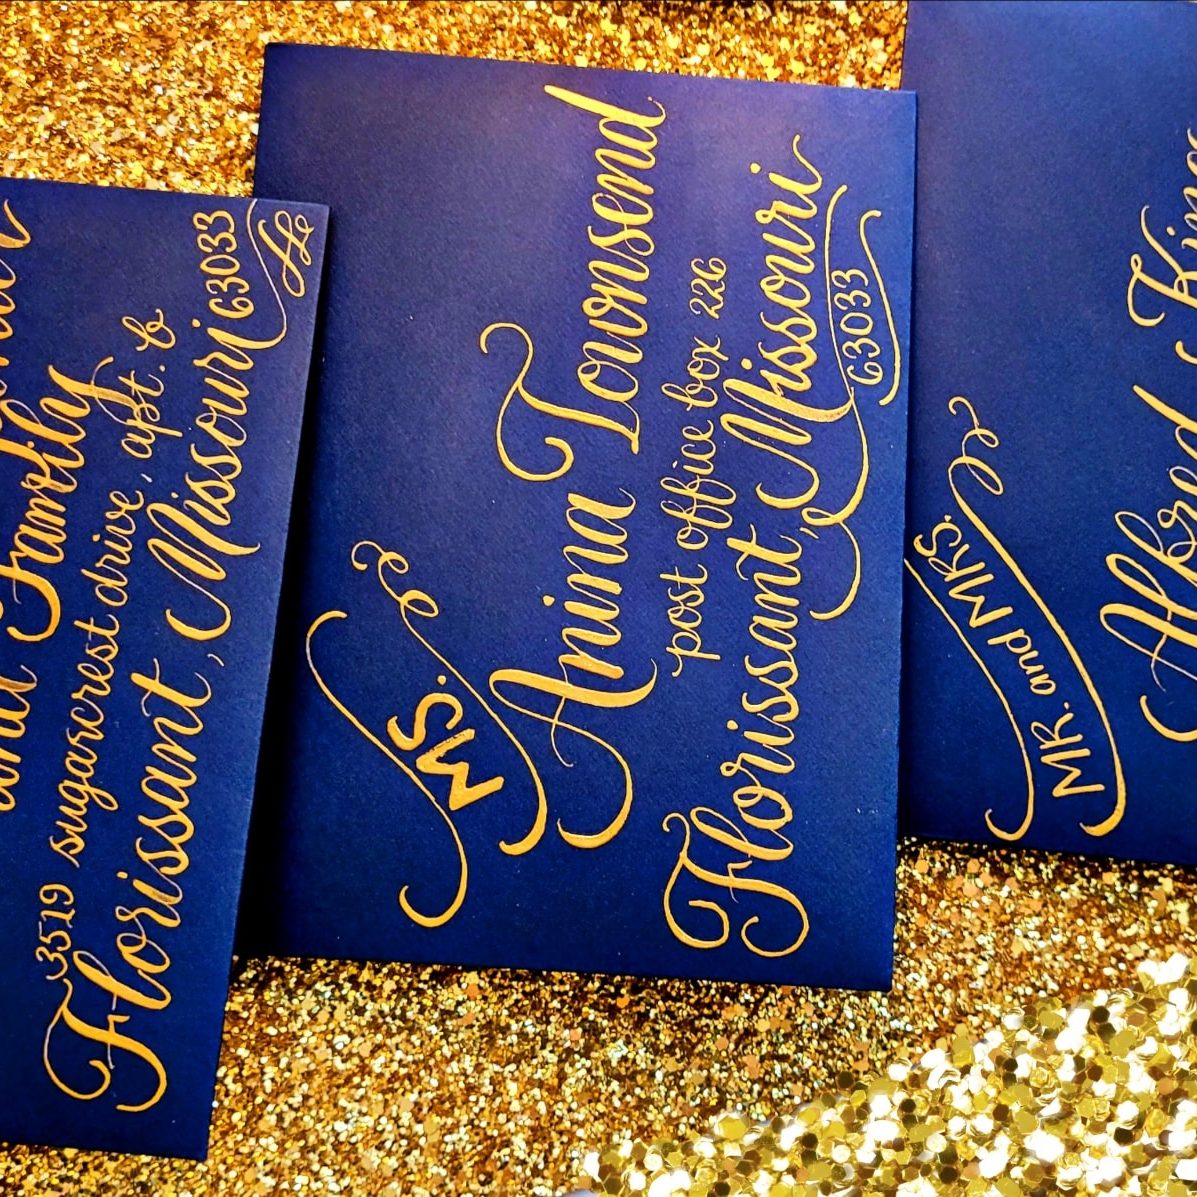 and Family
3519 sugarcrest drive, apt. b
Florissant, Missouri 63033
Ms.
Anina Townsend
post office box 226
Florissant, Missouri
63033
MR. and MRS.
Alfred King